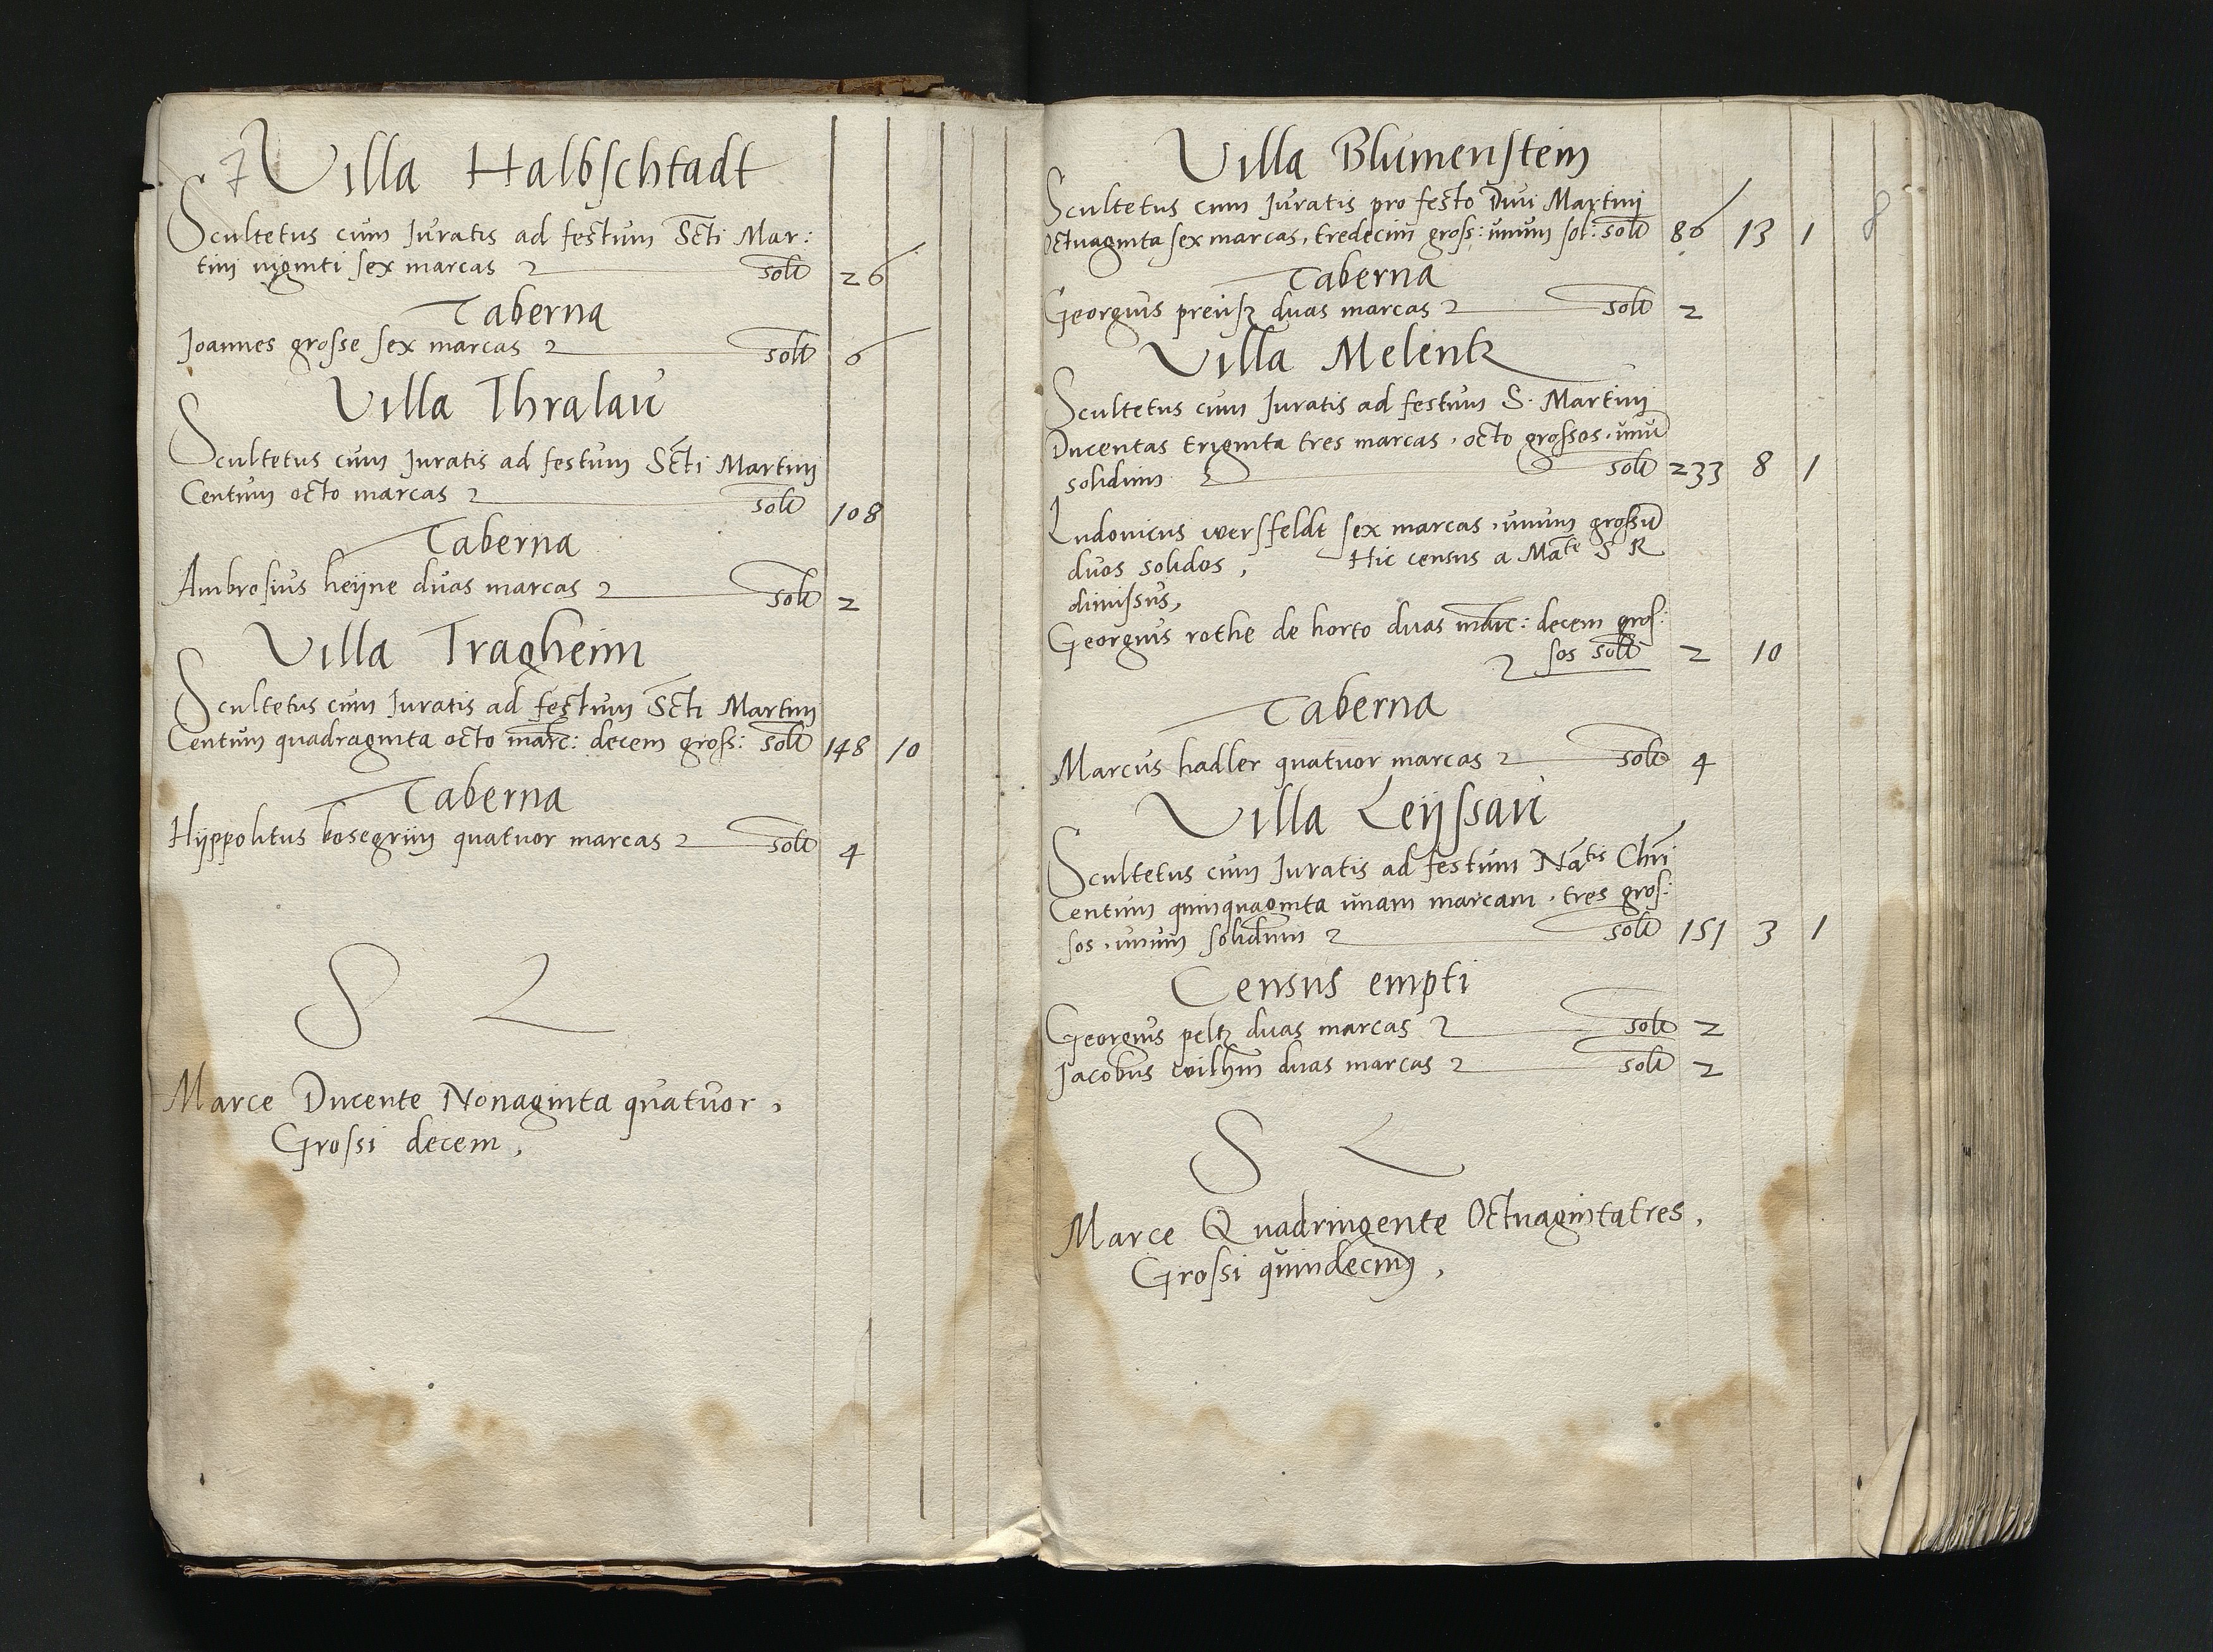 7
Villa Halbschtadt
Scultetus cum Iuratis ad festum Scti Mar:
tini viginti sex marcas solt 26
Taberna
Joannes grosse sex marcas solt 6
Villa Thralau
Scultetus cum Iuratis ad festum Scti Martini
Centum octo marcas solt 108
Taberna
Ambrosius heÿne duas marcas solt 2
Villa Tragheim
Scultetus cum Iuratis ad festum Scti Martini
Centum quadraginta octo marc: decem gross: solt 148 10
Taberna
Hÿppolitus bosegrün quatuor marcas solt 4
S L
Marce Ducente Nonaginta quatuor,
Grossi decem,
8
Villa Blumenstein
Scultetus cum Iuratis pro festo Divi Martini
octuaginta sex marcas, tredecim gross: unum sol: solt 86 13 1
Taberna
Georgius preüss duas marcas solt 2
Villa Melenk
Scultetus cum Iuratis ad festum S. Martini
Ducentas triginta tres marcas, octo grossos, unū
solidum solt 233 8 1
Ludovicus wersfeldt sex marcas, unum grossū
duos solidos, Hic census a Mate S R
dimissus,
Georgius rothe de horto duas marc: decem gros:
sos solt 2 10
Taberna
Marcus hadler quatuor marcas solt 4
Villa Leÿssau
Scultetus cum Iuratis ad festum Natis Chri
Centum quinquaginta unam marcam, tres gros:
sos, unum solidum solt 151 3 1
Census empti
Georgius peltz duas marcas solt 2
Jacobus wilhm duas marcas solt 2
S L
Marce Quadringente Octuaginta tres,
Grossi quindecim,